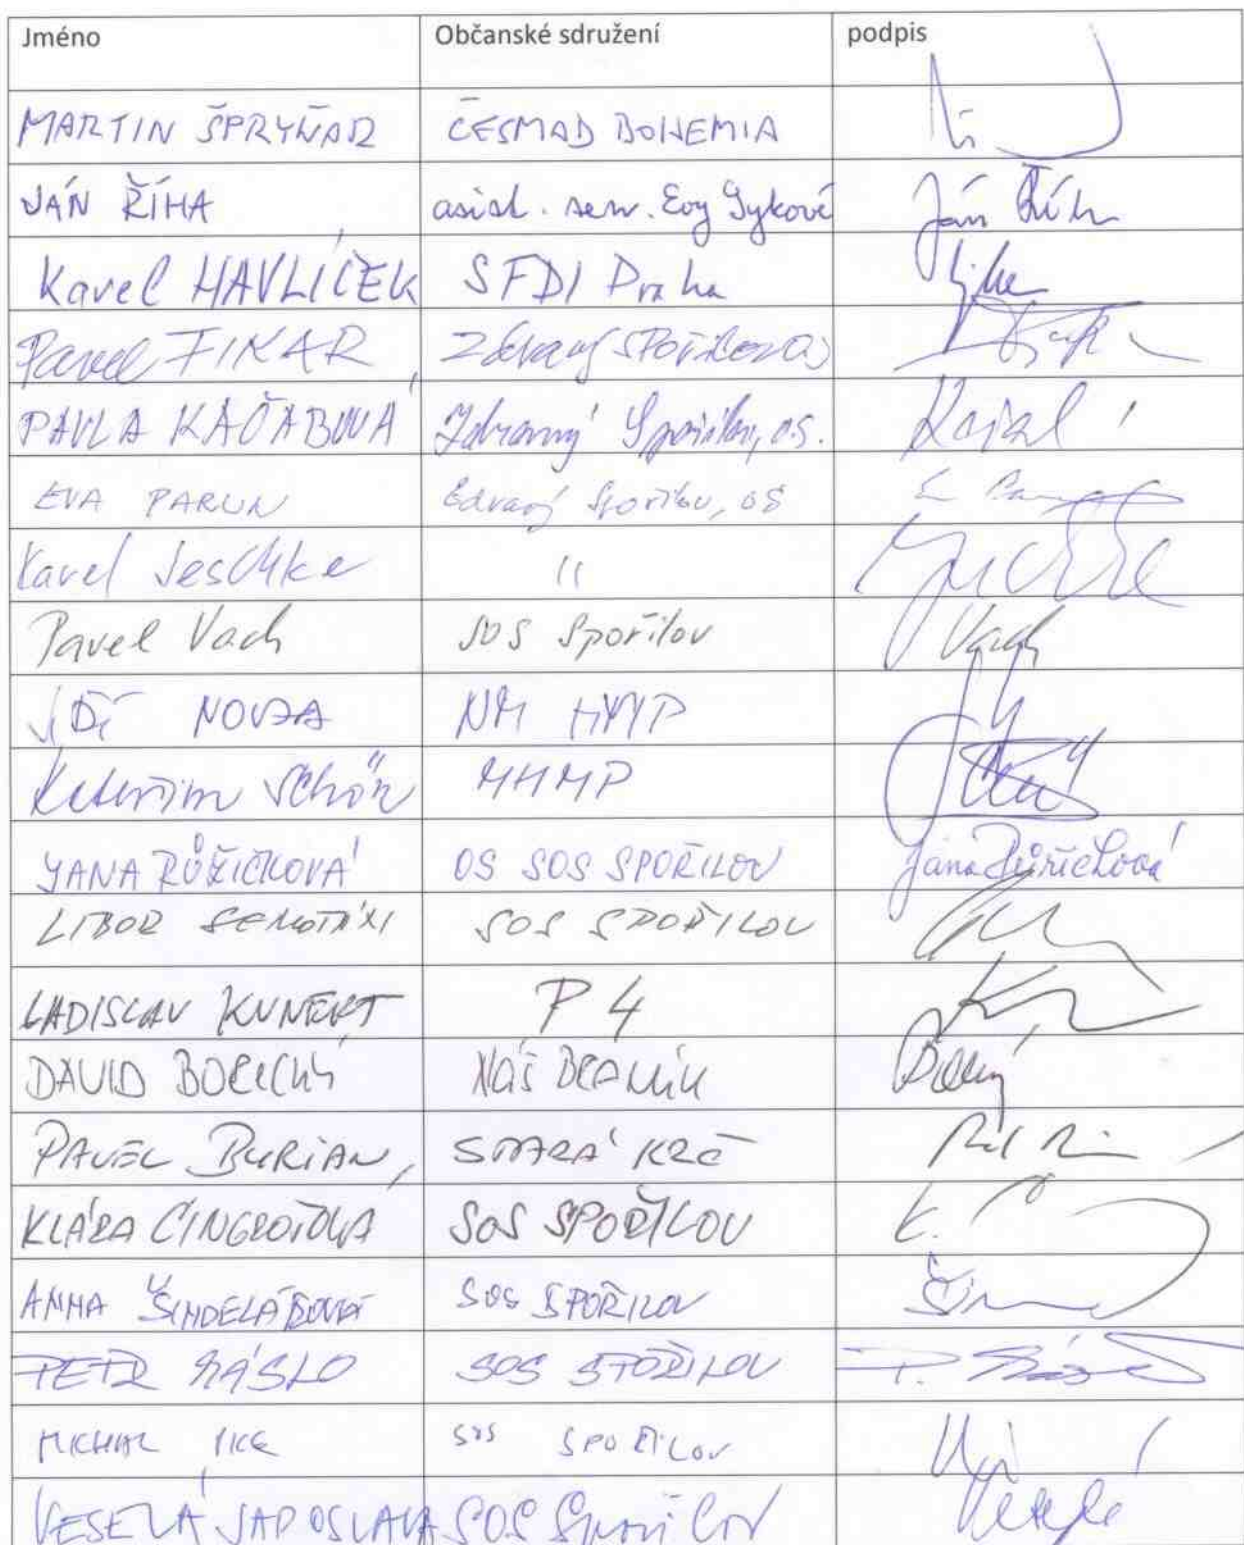 Jméno Občanské sdružení podpis
MARTIN ŠPRYŇAR ČESMAD BOHEMIA
JÁN ŘÍHA asist. sen. Evy Sykové Ján Říha
Karel HAVLÍČEK SFDI Praha
Pavel FIKAR, Zdravý Spořilov OS
PAVLA KAČABOVÁ Zdravý Spořilov, o.s.
EVA PARUN Zdravý Spořilov, OS
Karel Jeschke 11
Pavel Vach SOS Spořilov Vach
JIŘÍ HMP
Kateřina Schön MHMP
JANA RŮŽIČKOVÁ OS SOS SPOŘILOV Jana Růžičková
LIBOR SOS SPOŘILOV
LADISLAV KUNERT P 4
DAVID BORECKÝ NÁŠ BRANÍK
PAVEL BURIAN, STARÁ KRČ
KLÁRA SOS SPOŘILOV
ANNA ŠINDELÁŘOVÁ SOS SPOŘILOV
PETR MÁSLO SOS SPOŘILOV
MICHAL SOS SPOŘILOV
VESELÁ JAROSLAVA SOS Spořilov Veselá